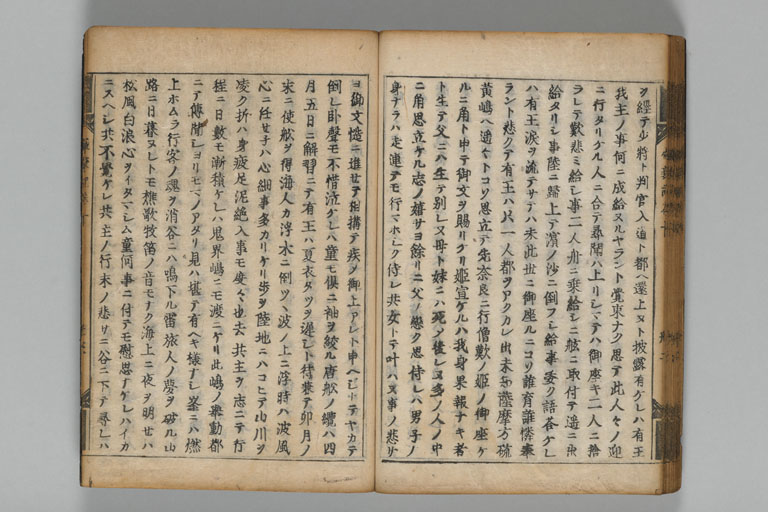 ヲ經テ少將ト判官入道ト都ヘ還上ヌト披露有ケレハ有王
我主ノ事何ニ成給ヌルヤラント覺束ナク思テ此人々ノ迎
ニ行タリケル人ニ合テ尋聞ハ上リシマテハ御座キ二人ニ捨
ラレテ歎悲ミ給シ事二人舟ニ乗給シニ舷ニ取付テ遥ニ出
給タリシ事陸ニ歸上テ濱ノ沙ニ倒フシ給事委ク語答ケレ
ハ有王涙ヲ流テサテハ未此世ニ御座ルニコソ誰育誰憐奉
ラント悲クテ有王ハ只一人都ヲアクカレ出未知薩摩方硫
黄嶋ヘ通ヘトコソ思立テ先奈良ニ行僧都ノ姫ノ御座ケ
ルニ角ト申テ御文ヲ賜リケリ姫宣ケルハ我身果報ナキ者
ト生テ父ニハ生テ別レヌ母ト妹ニハ死ノ後レヌ多ノ人ノ中
ニ角思立ケル志ノ嬉サヨ餘リニ父ノ戀ク思侍レハ男子ノ
身ナラハ走連テモ行マホシク侍レ共女トテ叶ハヌ事ノ悲サ
ヨ御文慥ニ進セテ相構テ疾ヲ御上アレト申ヘシトテヤカテ
倒レ臥聲モ不惜泣ケレハ童モ僕ニ袖ヲ絞ル唐船ノ纜ハ四
月五日ニ解習ニテ有王ハ夏衣タツヲ遅シト待兼テ卯月ノ
末ニ使船ヲ得海人カ浮木ニ倒ツヽ波ノ上ニ浮時ハ波風
心ニ任セ子ハ心細事多カリケリ歩ヲ陸地ニハコヒテ山川ヲ
凌ク折ハ身疲足泥絶入事モ度々也去共主ヲ志ニテ行
程ニ日數モ漸積ケレハ鬼界嶋ニモ渡ニケリ此嶋ノ爲躰都
ニテ傳聞シヨリモマノアタリ見ハ堪テ有ヘキ様ナシ峯ニハ燃
上ホムラ行客ノ魂ヲ消谷ニハ鳴下ル雷旅人ノ夢ヲ破ル山
路ニ日暮ヌレトモ樵歌牧笛ノ音モナク海上ニ夜ヲ明セハ
松風白浪心ヲイタマシム童何事ニ付テモ慰思ナケレハイカ
ニスヘシ共不覺ケレ共主ノ行末ノ悲サニ谷ニ下テ尋レハ